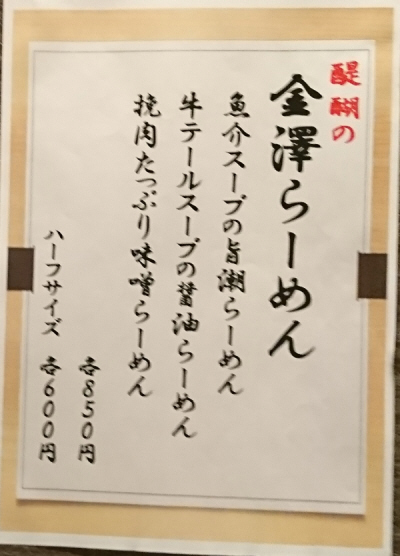 醍醐の
金澤らーめん
魚介スープの旨潮らーめん
牛テールスープの醤油らーめん
挽肉たっぷり味噌らーめん
各850円
ハーフサイズ 各600円